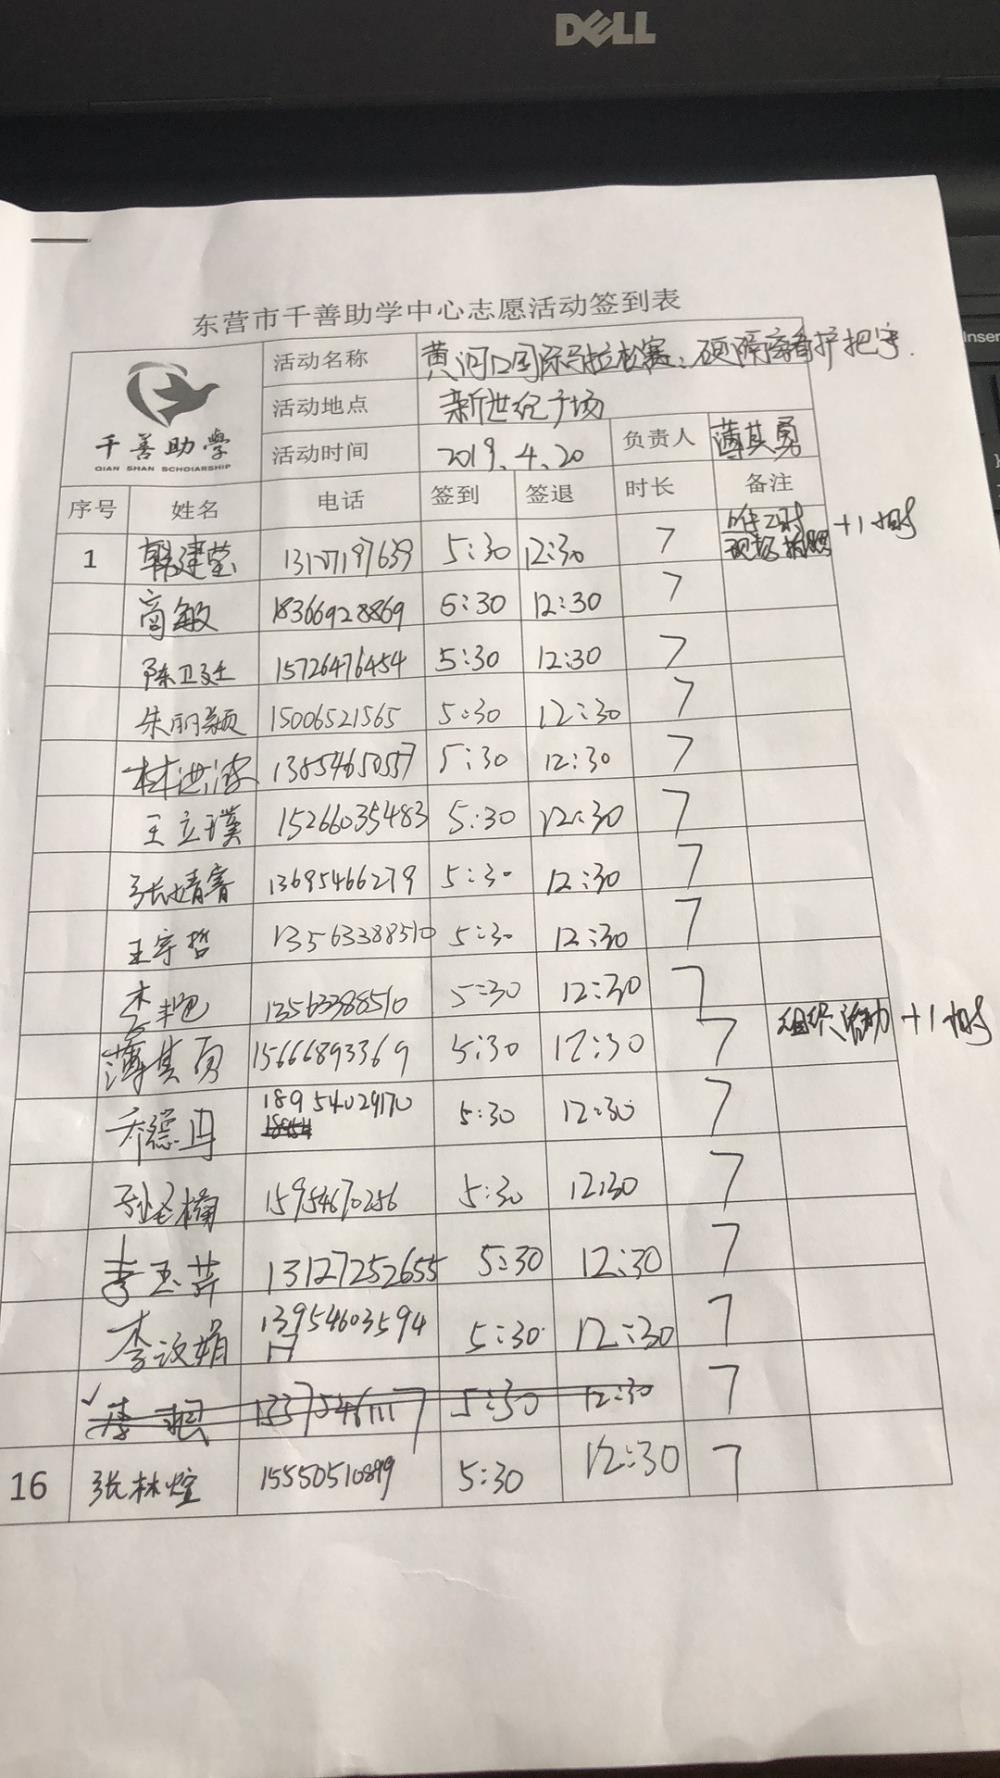 DELL
Inser
东营市千善助学中心志愿活动签到表
千善助學
QIAN SHAN SCHOLARSHIP
活动名称 黄河口国际马拉松赛:硬隔离看护把守.
活动地点 新世纪广场
活动时间 2019.4.20 负责人 薄其勇
序号 姓名 电话 签到 签退 时长 备注
1 韩建莹 5:30 12:30 7 现场拍照 +1小时
高敏 18366928869 6:30 12:30 7
陈卫廷 15726476454 5:30 12:30 7
朱丽颖 15006521565 5:30 12:30 7
13854650557 5:30 12:30 7
王立璞 15266035483 5:30 12:30 7
张婧睿 13695466279 5:30 12:30 7
王宇哲 13563388510 5:30 12:30 7
李艳 13563388510 5:30 12:30 7
薄其勇 15666893369 5:30 12:30 7 组织活动 +1小时
乔德 18954029170 5:30 12:30 7
18954
15954670256 5:30 12:30 7
李玉芹 13127252655 5:30 12:30 7
李汶娟 13954603594 5:30 12:30 7
5:30 12:30 7
16 张林煊 15550510899 5:30 12:30 7